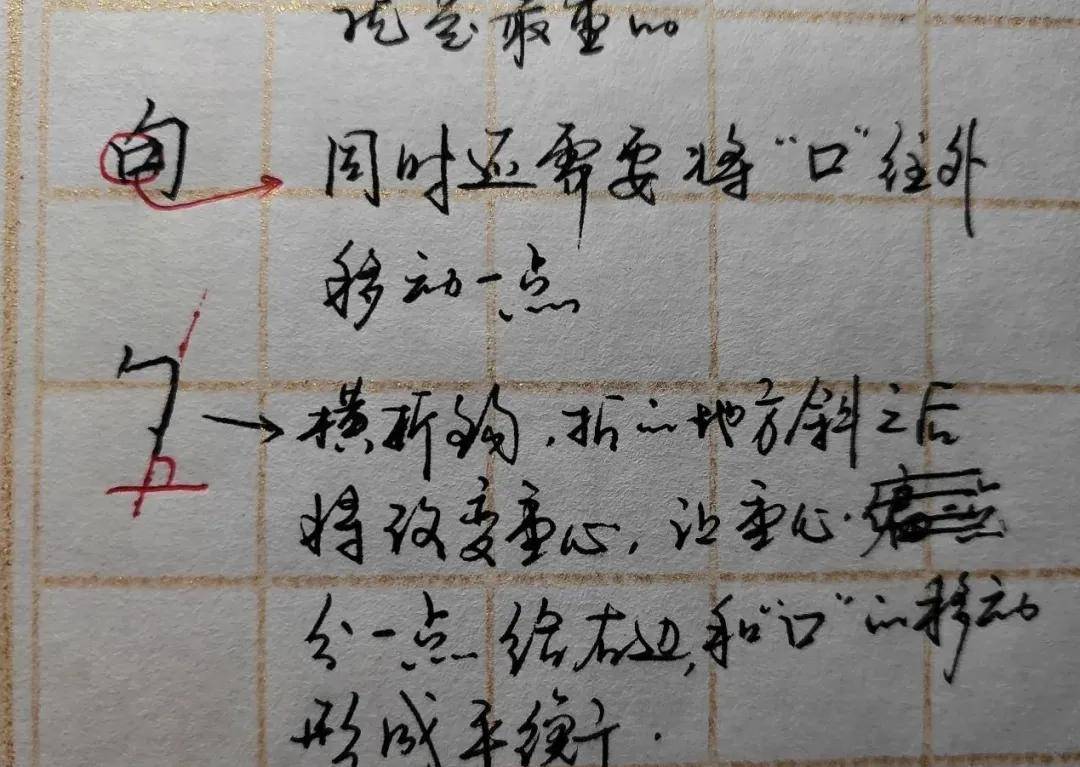 就是最重的
句
同时还需要将“口”往外
移动一点
横折钩，折的地方斜之后
将改变重心，让重心
分一点给右边，和“口”的移动
形成平衡.